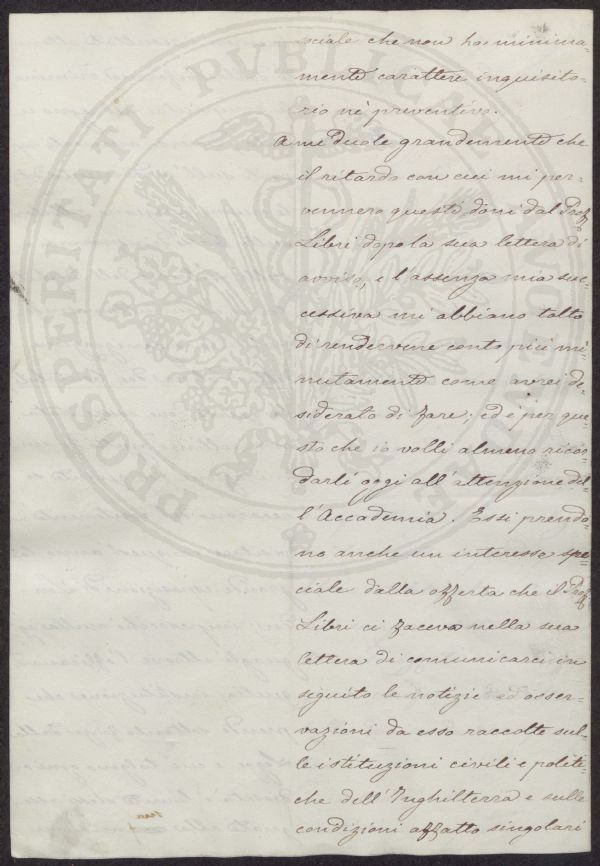 ciale che non ha minima-
mente carattere inquisito-
rio nè preventivo.
A me duole grandemente che
il ritardo con cui mi per-
vennero questi doni dal Prof.
Libri dopo la sua lettera di
avviso, e l'assenza mia suc-
cessiva mi abbiano tolto
di rendervene conto più mi-
nutamente come avrei de-
siderato di fare; ed è per que-
sto che io volli almeno ricor-
darli oggi all'attenzione del-
l'Accademia. Essi prendo-
no anche un interesse spe-
ciale dalla offerta che il Prof.
Libri ci faceva nella sua
lettera di comunicarci in
seguito le notizie ed osser-
vazioni da esso raccolte sul-
le istituzioni civili e politi-
che dell'Inghilterra e sulle
condizioni affatto singolari
PROSPERITATI PVBLICAE